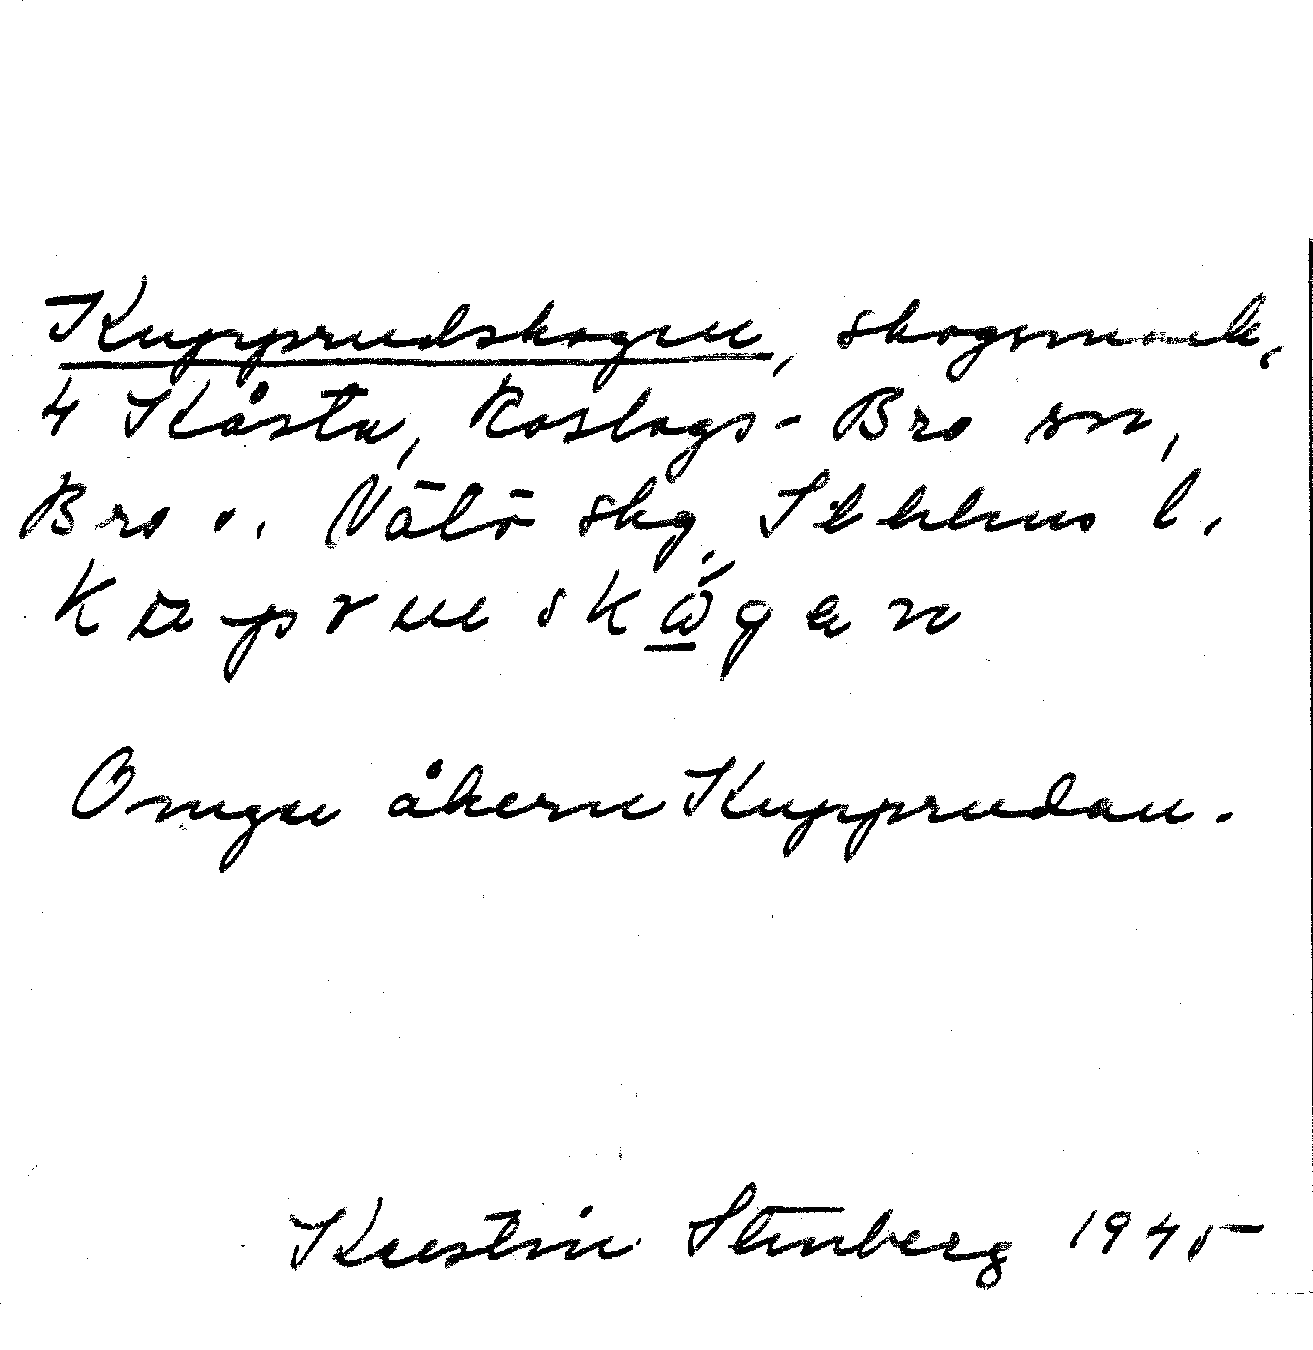 Kupprudskogen, skogsmark,
4 Kåsta, Roslags-Bro sn,
Bro o. Vätö skg. Sthlms l.
Omger åkern Kupprudan.
Kerstin Stenberg 1945